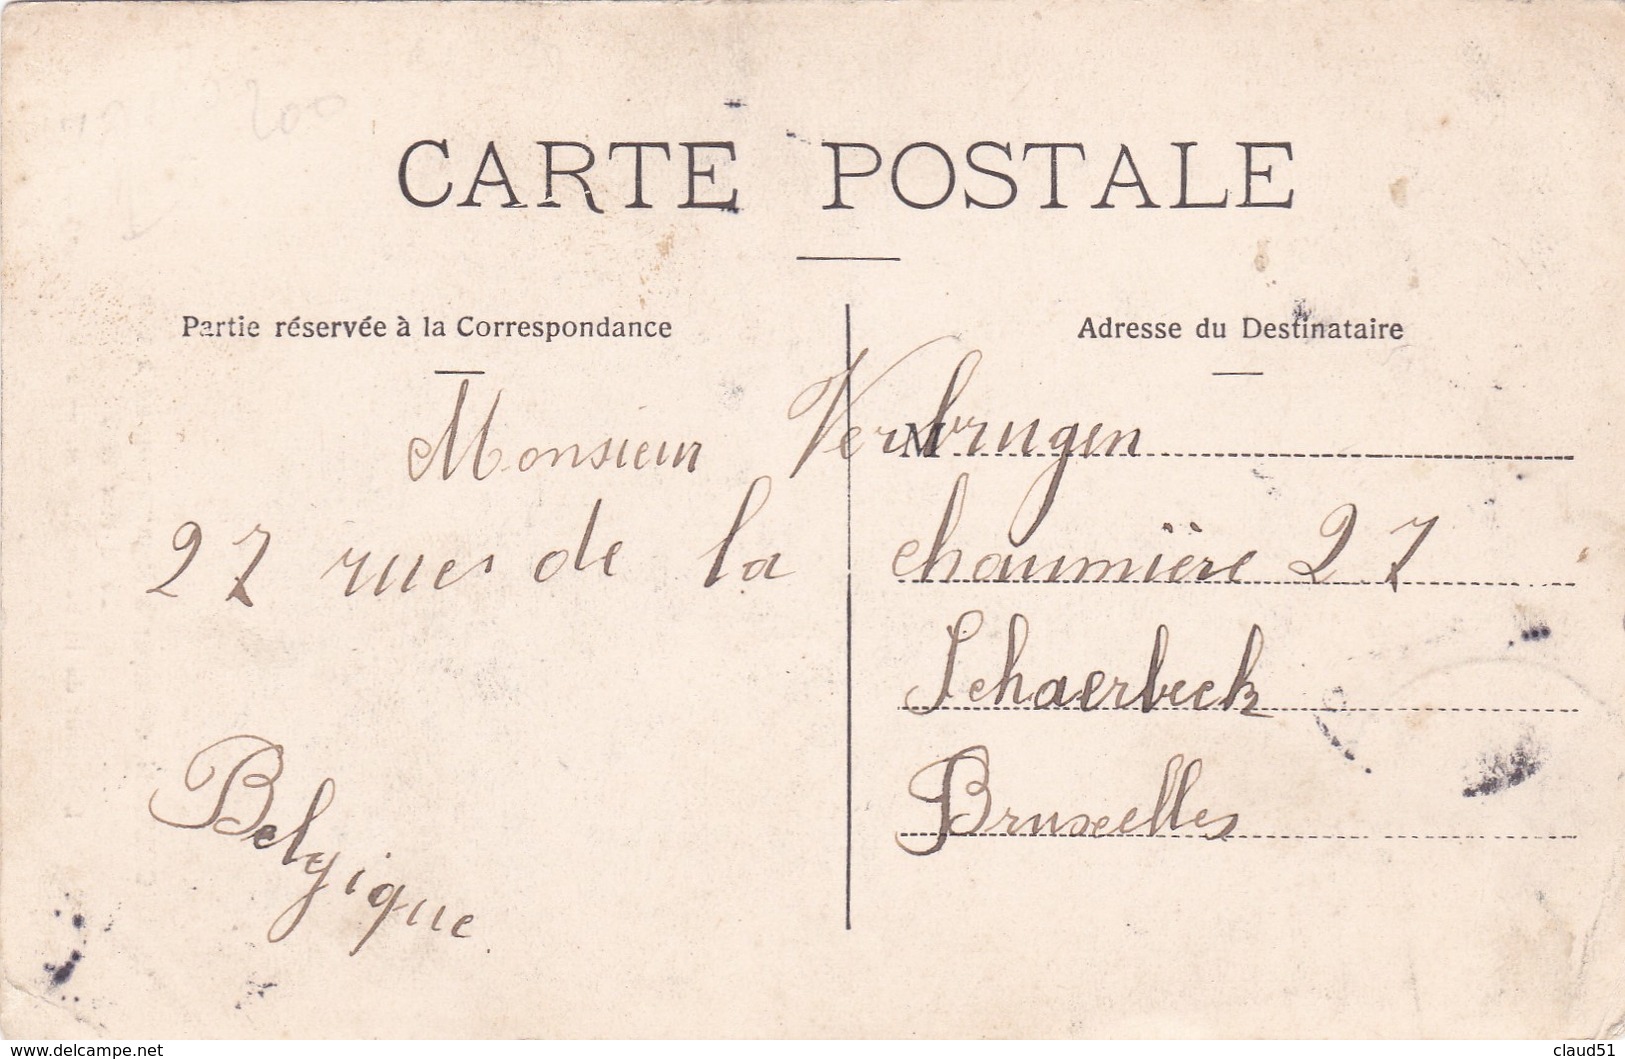 200
CARTE POSTALE
Partie réservée à la Correspondance
Adresse du Destinataire
Monsieur Verbrugen
M
27 rues de la chaumière 27
Schaerbeek
Bruxelles
Belgique
www.delcampe.net
claud51